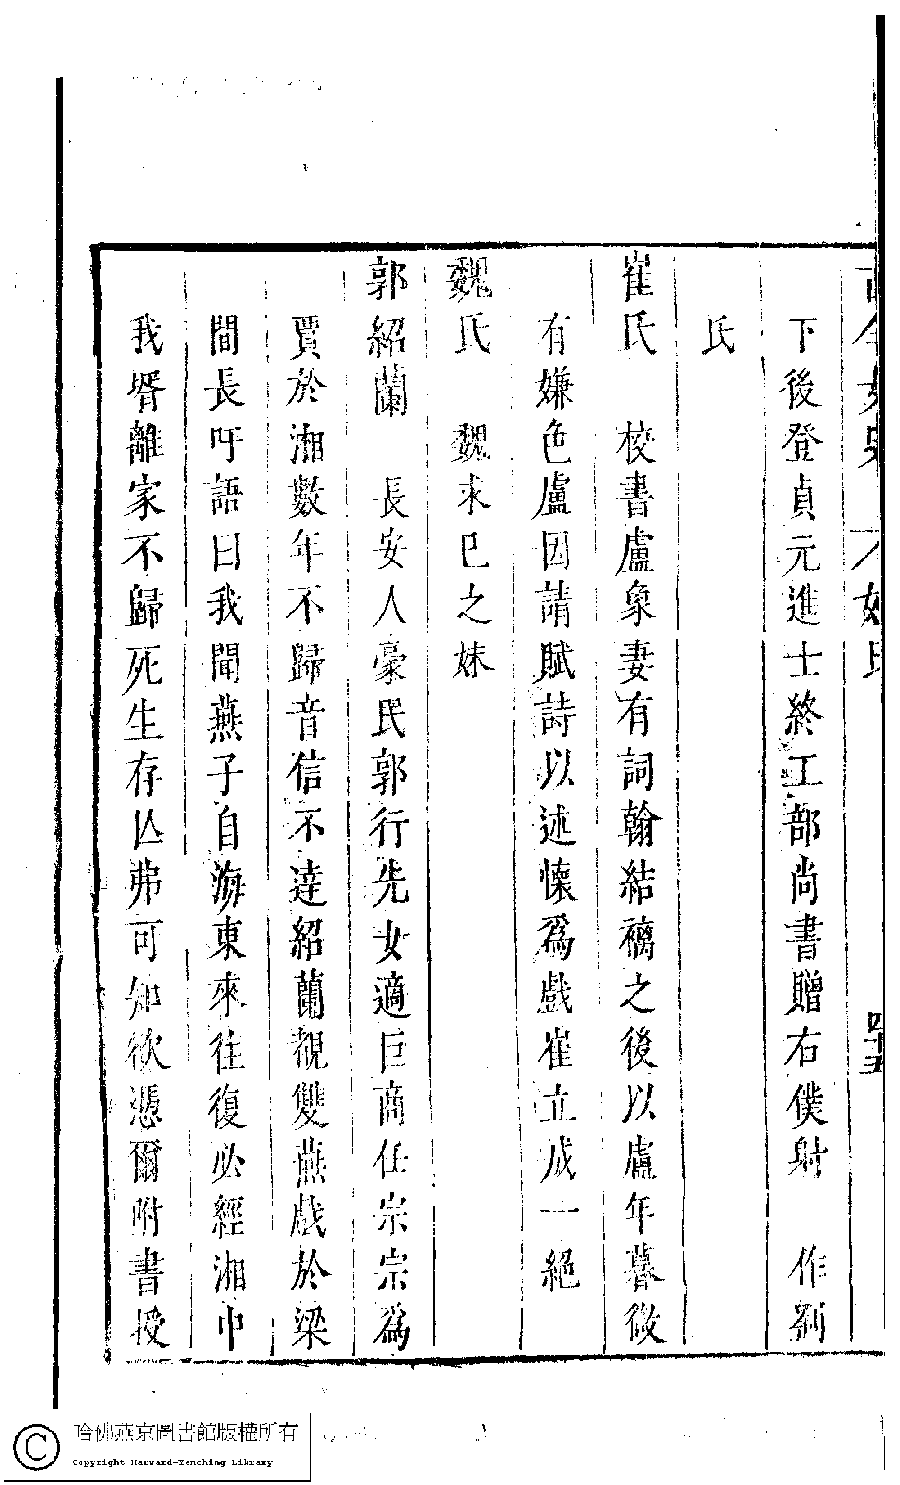 古今女史 姓氏 四十五
下後登貞元進士終工部尚書贈右僕射 作劉
氏
崔氏 校書盧象妻有詞翰結褵之後以盧年暮微
有嫌色盧因請賦詩以述懷為戲崔立成一絕
魏氏 魏求巳之妹
郭紹蘭 長安人豪民郭行先女適巨商任宗宗為
賈於湘數年不歸音信不達紹蘭覩雙燕戲於梁
間長吁語曰我聞燕子自海東來往復必經湘中
我壻離家不歸死生存亾弗可知欲憑爾附書投
哈佛燕京圖書館版權所有
Copyright Harvard-Yenching Library